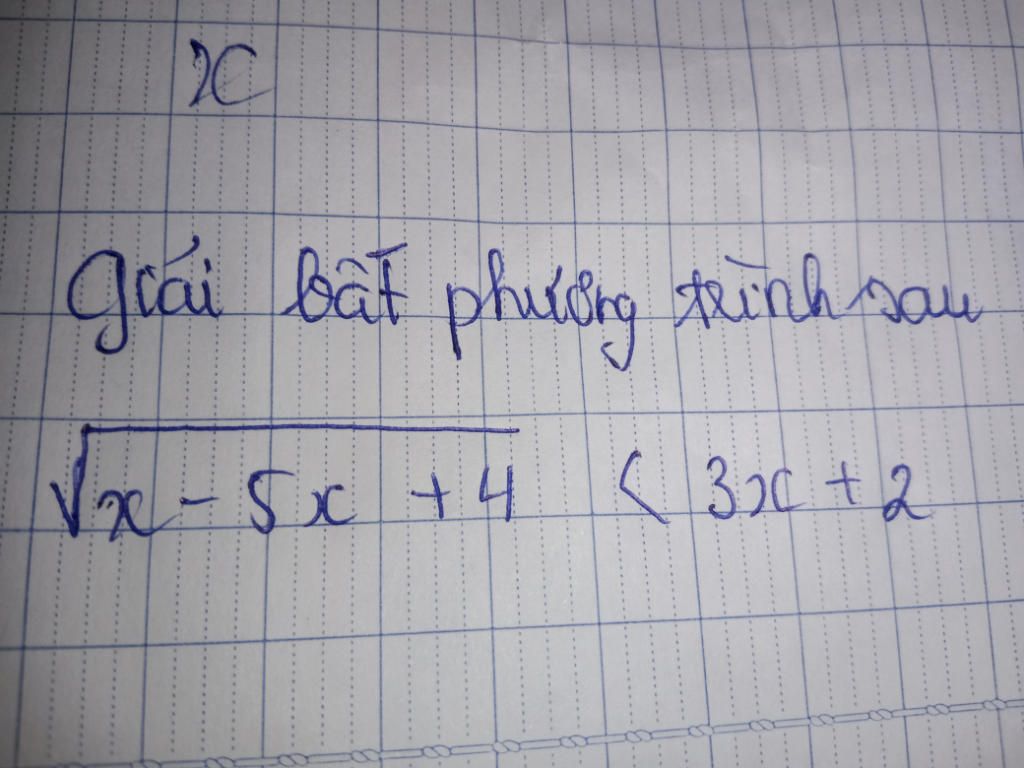 x
Giải bất phương trình sau
√x - 5x + 4 < 3x + 2